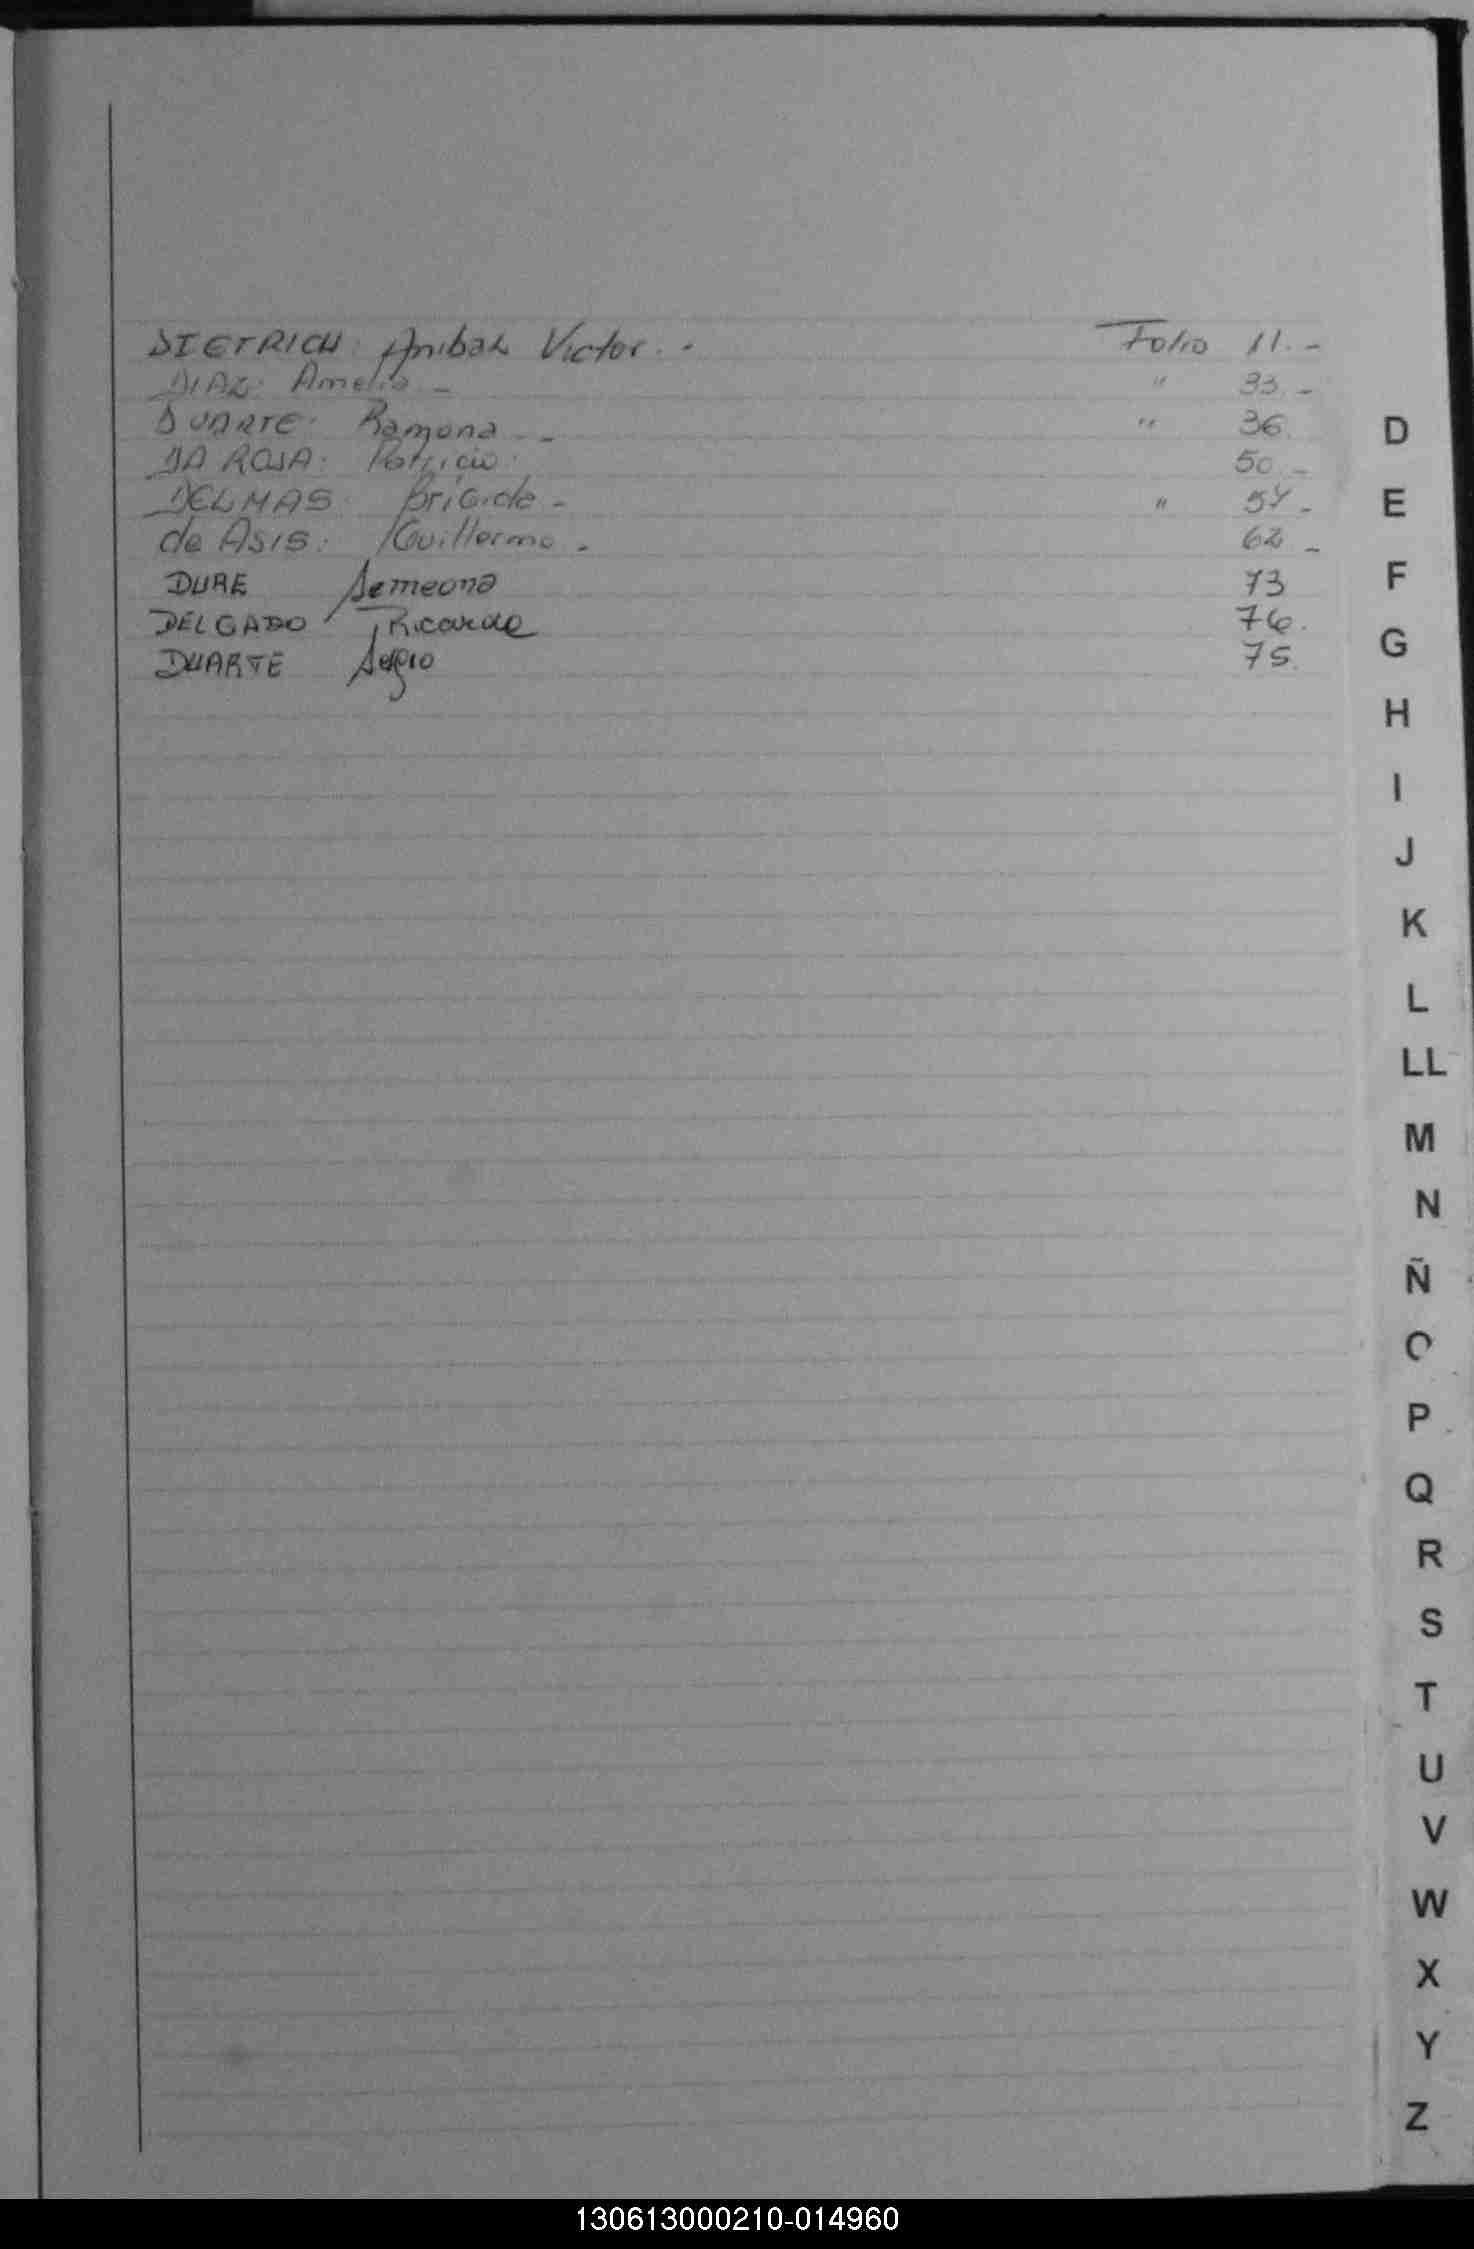 DIETRICH: Anibal Victor. - Folio 11. -
DIAZ: Amelia - " 33. -
DUARTE: Ramona - - " 36.
DA ROSA: Patricio. 50. -
DELMAS: Brigida - " 57 -
de Asis: Guillermo - 62 -
DURE Semeona 73
DELGADO Ricardo 76.
DUARTE Sergio 75.
D
E
F
G
H
I
J
K
L
LL
M
N
Ñ
O
P
Q
R
S
T
U
V
W
X
Y
Z
130613000210-014960